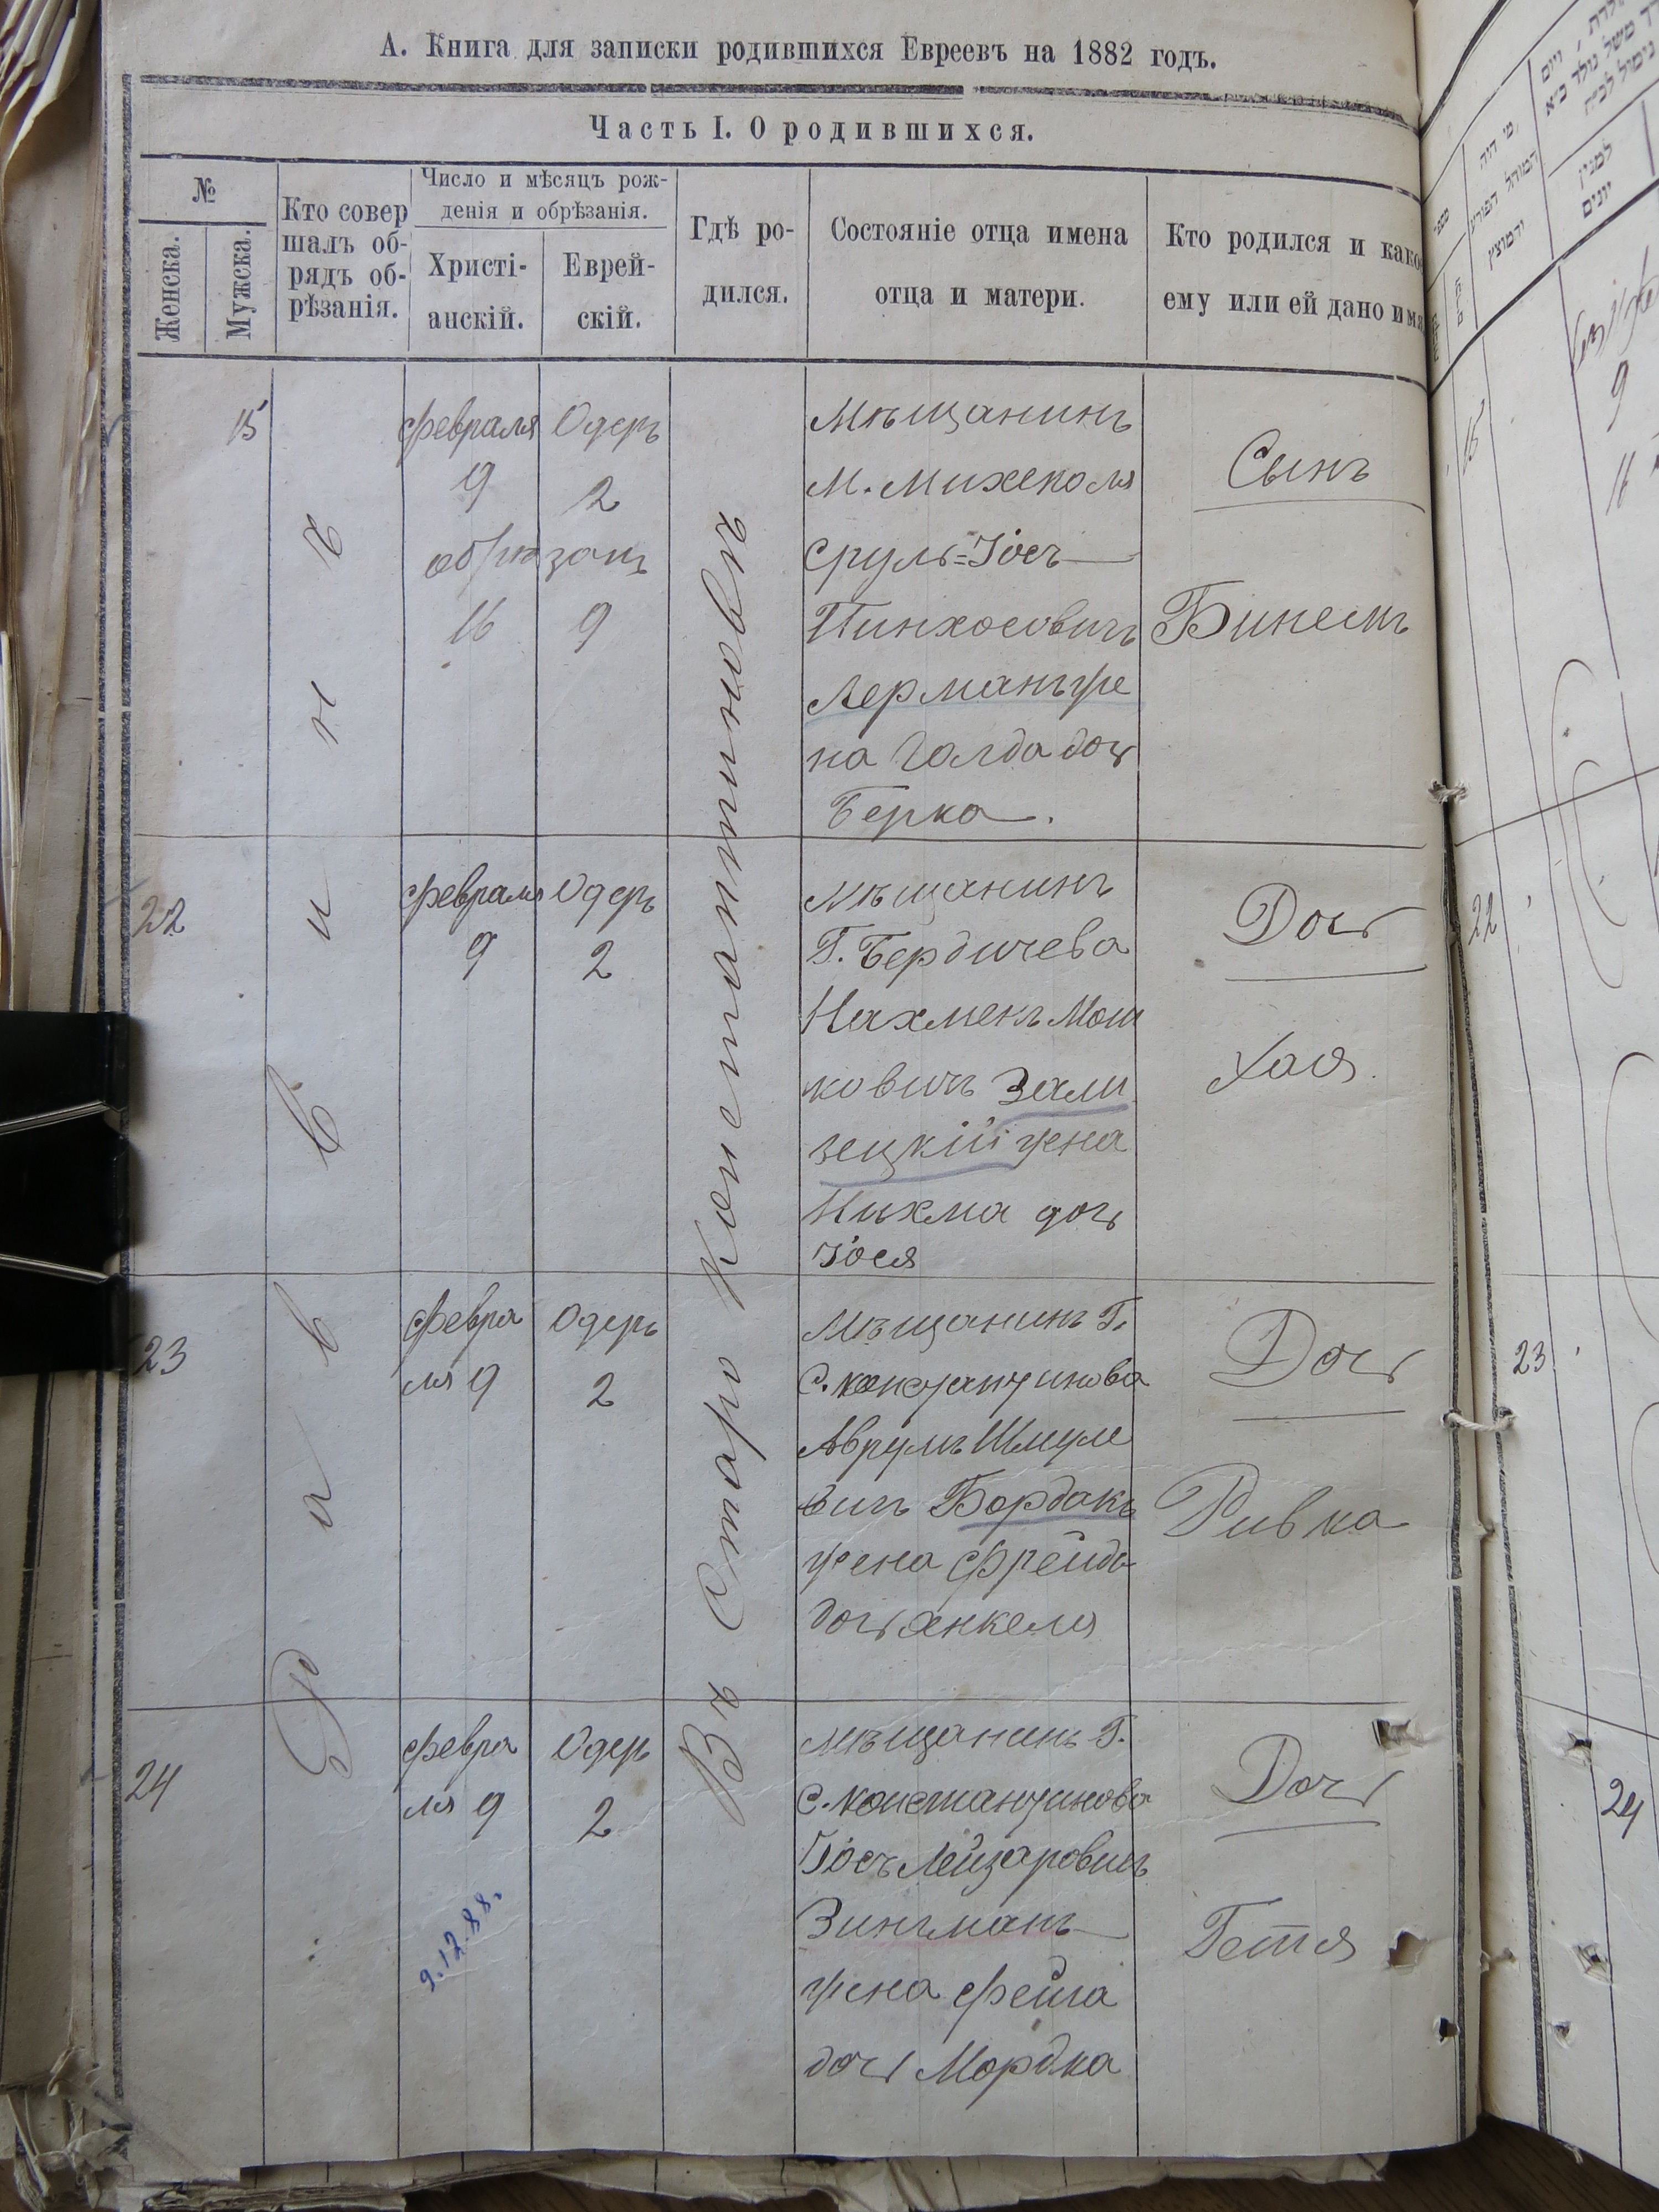 А. Книга для записки родившихся Евреевъ на 1882 годъ.
Часть I. О родившихся.
№
Женска.
Мужска.
Кто совер
шалъ об-
рядъ об-
рѣзанія.
Число и мѣсяцъ рож-
денія и обрѣзанія.
Христі-
анскій.
Еврей-
скій.
Гдѣ ро-
дился.
Состояніе отца имена
отца и матери.
Кто родился и како
ему или ей дано имя
Въ Старо Константиновѣ
15
февраля
9
Одеръ
2
обрѣзанъ
16
9
Мѣщанинъ
М. Михсполя
Сруль=Іосъ
Пинхосовичъ
Лерманъ же
на Голда доч
Берка.
Сынъ
Бинемъ
22
февраля
9
Одеръ
2
Мѣщанинъ
Г. Бердичева
Нахменъ Мош
ковичъ Зали
зецкій жена
Нихма доч
Іося
Доч
Хая.
23
февра
ля 9
Одеръ
2
Мѣщанинъ Г.
С. константинова
Аврумъ Шмуле
вичъ Бордакъ
жена Фрейда
доч Янкеля
Доч
Ривка
24
февра
ля 9
Одеръ
2
9.12.88.
Мѣщанинъ Г.
С. константинова
Іосъ Лейзаровичъ
Зингманъ
жена Фейга
доч Мордка
Доч
Гетя
15
22
23
24
9